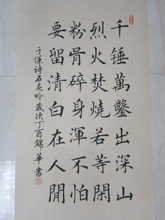 千锤萬鑿出深山
烈火焚燒若等閑
粉骨碎身渾不怕
要留清白在人間
于谦诗石灰吟歲次丁酉錦華書